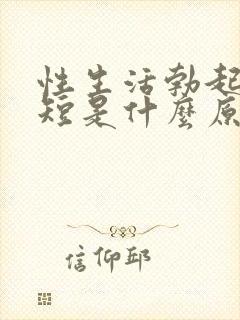 性生活勃起
短是什麼原
信仰邱